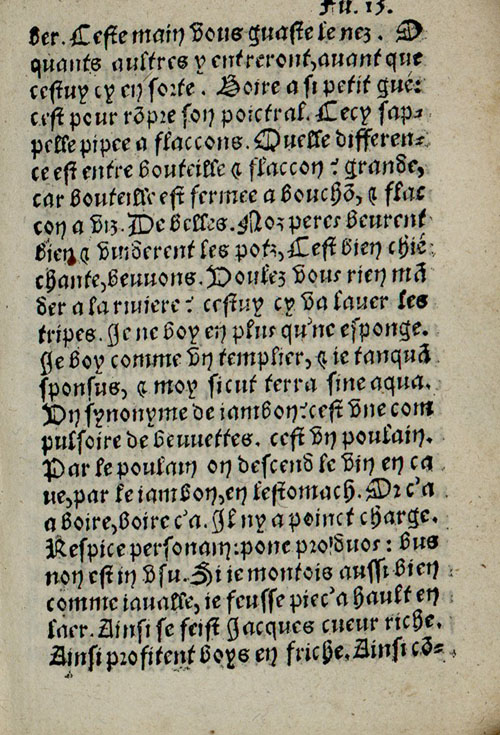 Fu. 15.
ber. Ceste main vous guaste le nez. O
quants aultres y entreront, auant que
cestuy cy en sorte. Boire a si petit gue:
cest pour rõpre son poictral. Cecy sap-
pelle pipee a flaccons. Quelle differen-
ce est entre bouteille & flaccon? grande,
car bouteille est fermee a bouchõ, & flac
con a viz. De belles. Noz peres beurent
bien & vuiderent les potz, Cest bien chié
chante, beuuons. Voulez vous rien mã
der a la riuiere? cestuy cy va lauer les
tripes. Je ne boy en plus qu'ne esponge.
Je boy comme vn templier, & ie tanquã
sponsus, & moy sicut terra sine aqua.
Vn synonyme de iambon? cest vne com
pulsoire de beuuettes. cest vn poulain.
Par le poulain on descend le vin en ca
ue, par le iambon, en lestomach. Or c'a
a boire, boire c'a. Il ny a poinct charge.
Respice personam: pone pro duos: bus
non est in vsu. Si ie montois aussi bien
comme iaualle, ie feusse piec'a hault en
laer. Ainsi se feist Jacques cueur riche.
Ainsi profitent boys en friche. Ainsi cõ-